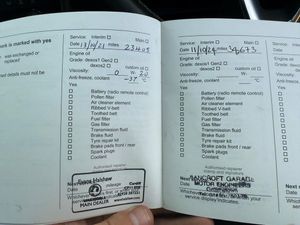 ark is marked with yes
was exchanged or
replaced
Service: Interim Main
Date miles 23405
Engine oil
Grade: dexos1 Gen2
dexos2 custom oil
Viscosity: 0 W: 20
Anti-freeze, coolant -37 °C
Yes
Battery (radio remote control)
Pollen filter
Air cleaner element
Ribbed V-belt
Toothed belt
Fuel filter
Gas filter
Transmission fluid
Brake fluid
Tyre repair kit
Brake pads front / rear
Spark plugs
Coolant
Authorised repairer
Evans Halshaw
Cardiff
mileage
MAIN DEALER
Service: Interim Main
Date 11/10/24 miles 34673
Engine oil
Grade: dexos1 Gen2
dexos2 custom oil
Viscosity: W:
Anti-freeze, coolant °C
Yes
Battery (radio remote control)
Pollen filter
Air cleaner element
Ribbed V-belt
Toothed belt
Fuel filter
Gas filter
Transmission fluid
Brake fluid
Tyre repair kit
Brake pads front / rear
Spark plugs
Coolant
Authorised repairer
stamp and signature
BANCROFT GARAGE
MOTOR ENGINEERS
service display indicates.